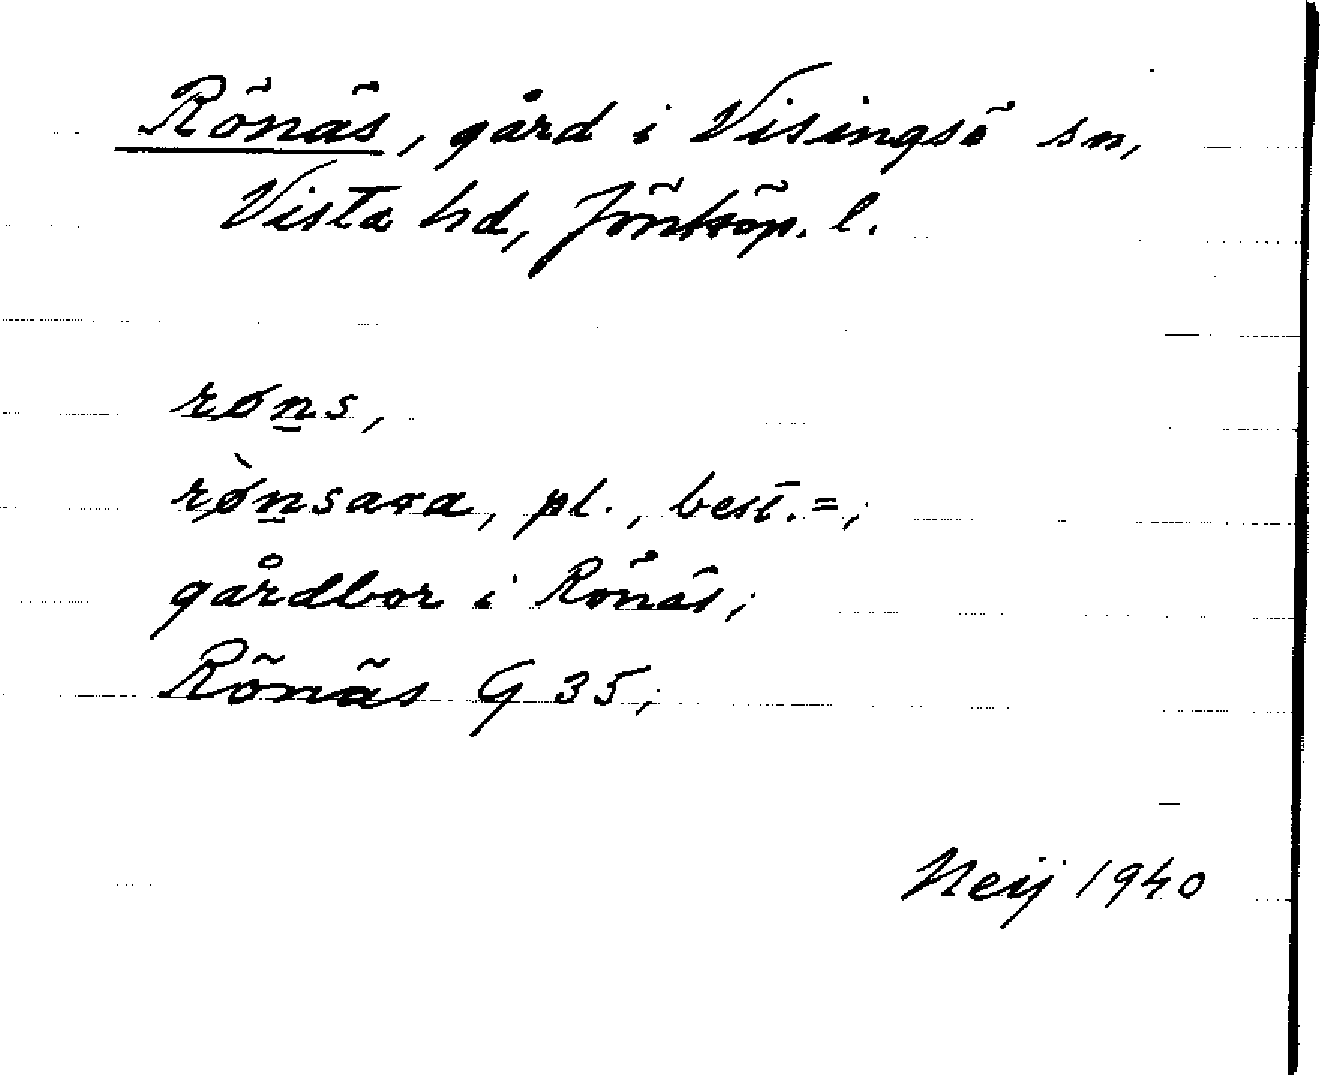 Rönäs, gård i Visingsö sn,
Vista hd, Jönköp. l.
røns,
rø̀nsara, pl., best. =;
gårdbor i Rönäs;
Rönäs G 35;
Neij 1940